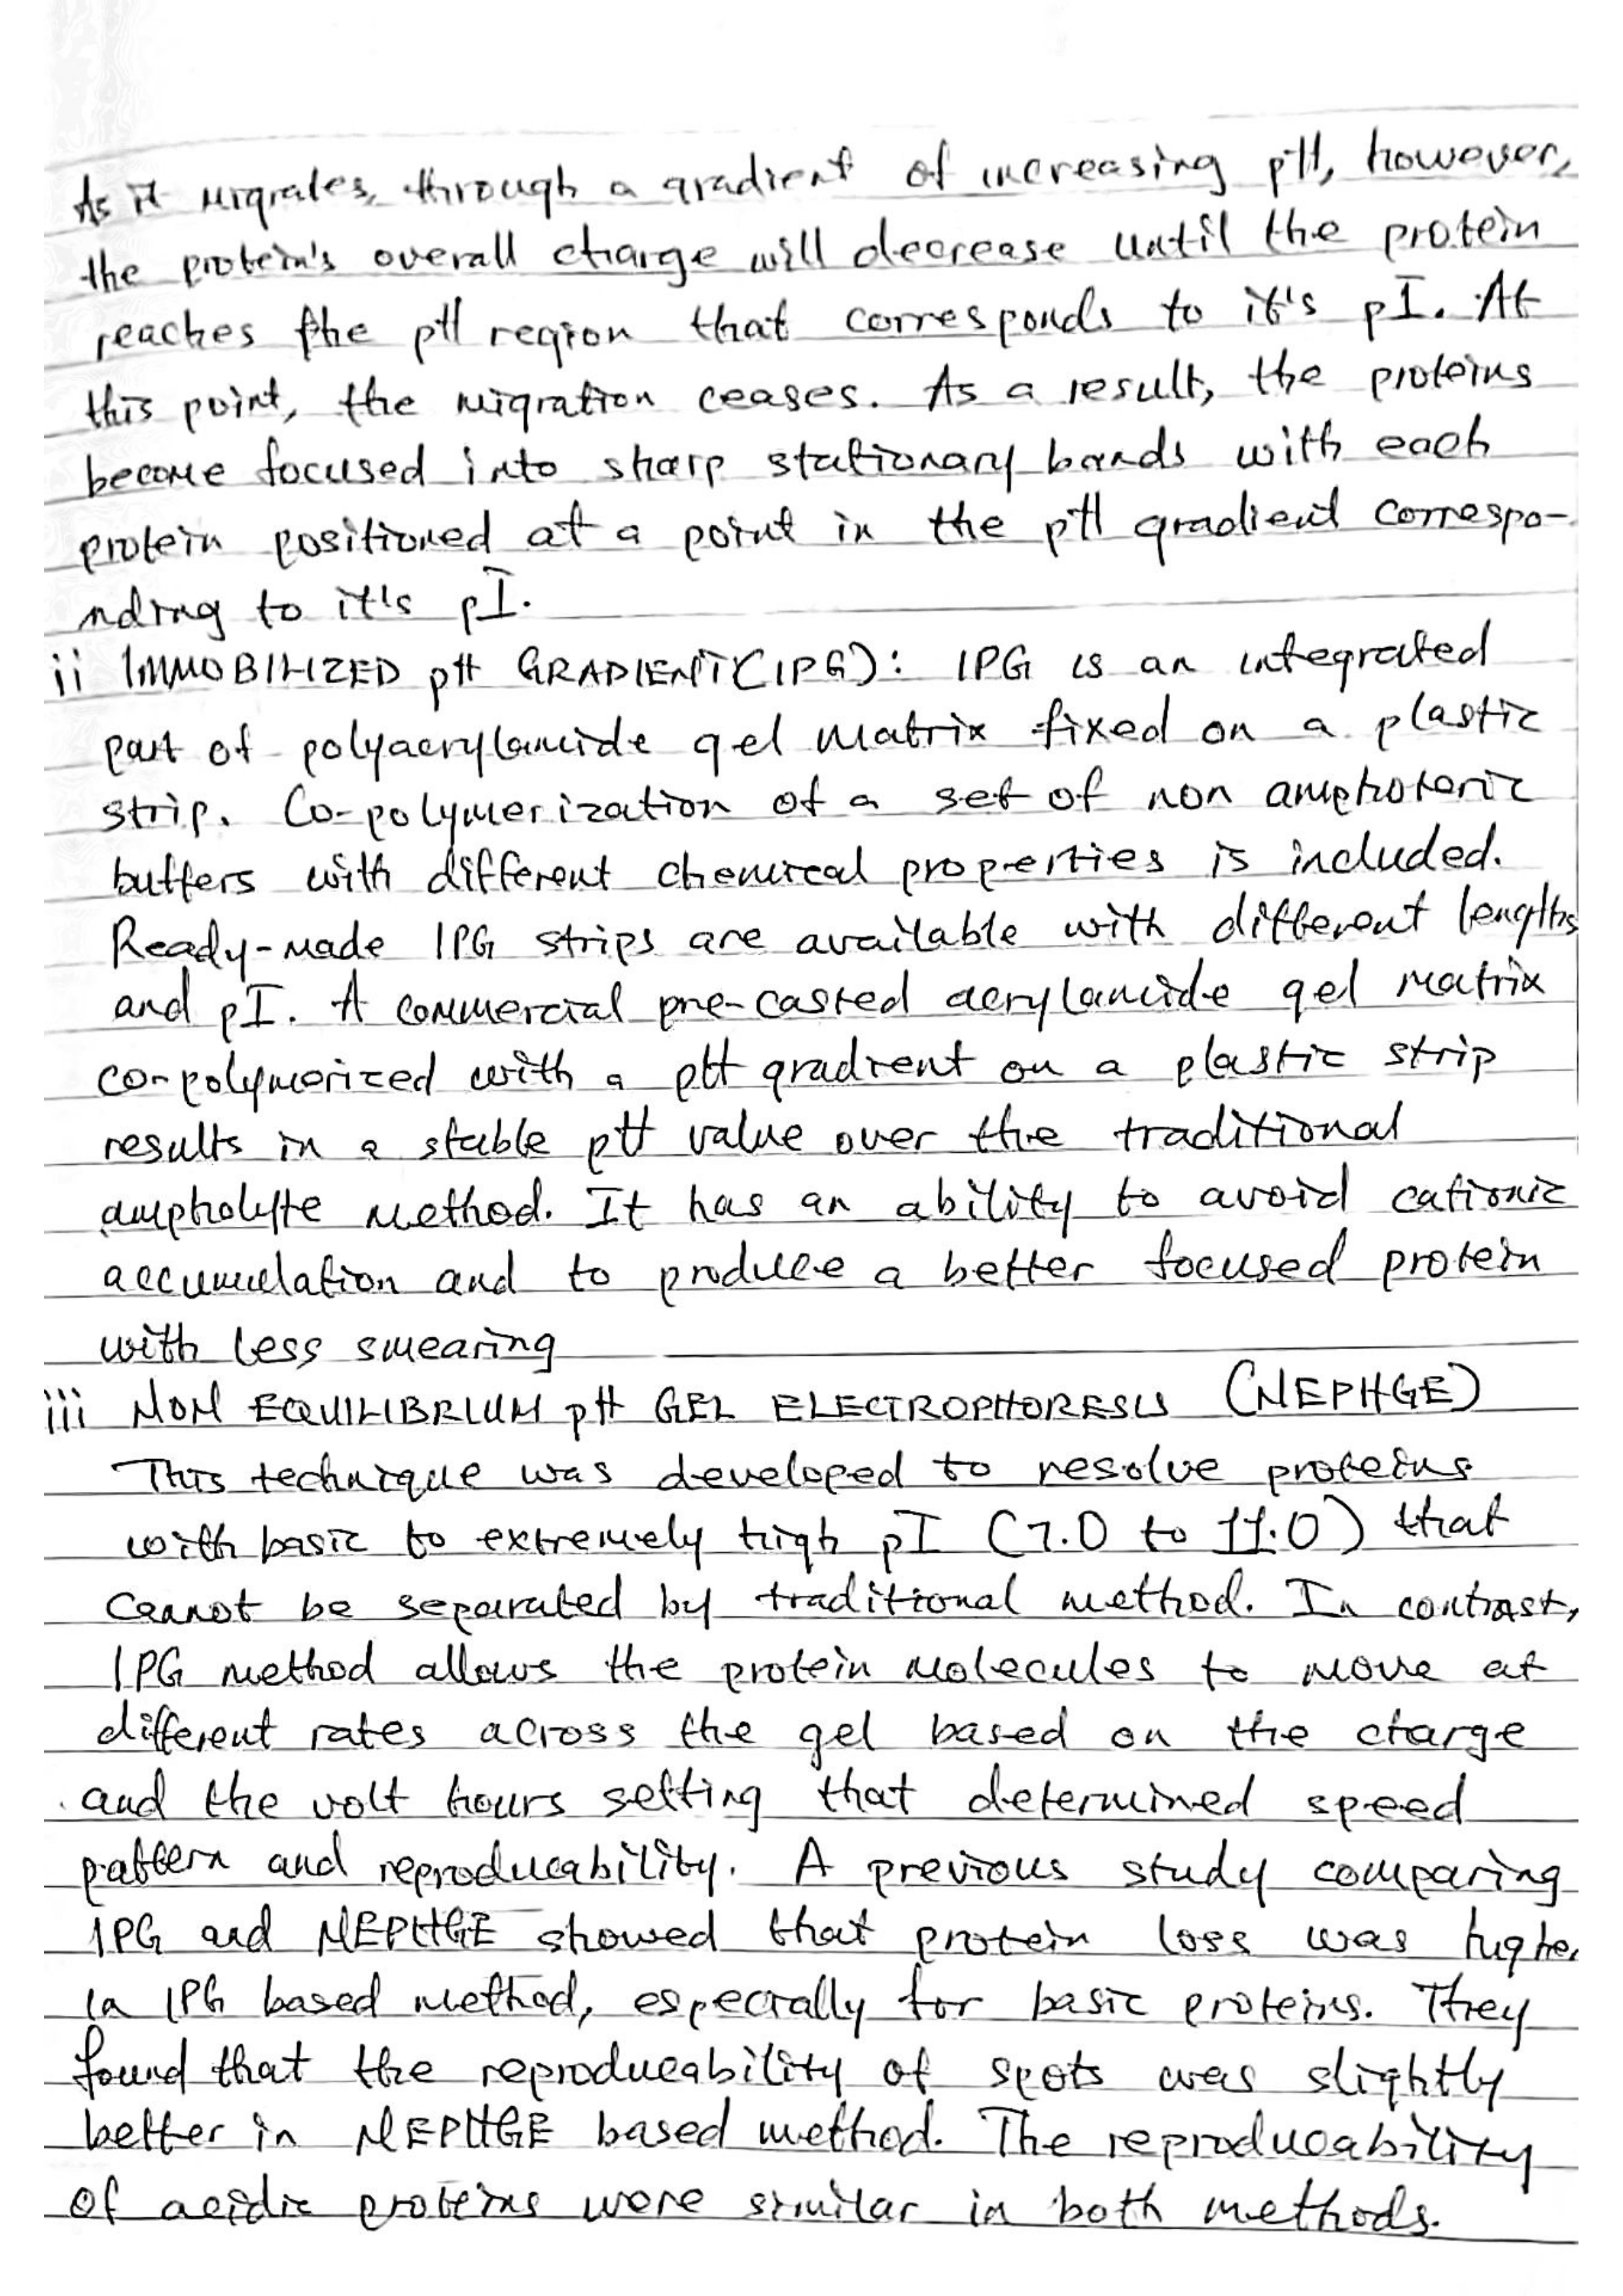 As it migrates, through a gradient of increasing pH, however,
the protein's overall charge will decrease until the protein
reaches the pH region that corresponds to it's pI. At
this point, the migration ceases. As a result, the proteins
become focused into sharp stationary bands with each
protein positioned at a point in the pH gradient correspo-
nding to it's pI.
ii IMMOBILIZED pH GRADIENT (IPG): IPG is an integrated
part of polyacrylamide gel matrix fixed on a plastic
strip. Co-polymerization of a set of non amphoteric
buffers with different chemical properties is included.
Ready-made IPG strips are available with different lengths
and pI. A commercial pre-casted acrylamide gel matrix
co-polymerized with a pH gradient on a plastic strip
results in a stable pH value over the traditional
ampholyte method. It has an ability to avoid cationic
accumulation and to produce a better focused protein
with less smearing
iii NON EQUILIBRIUM pH GEL ELECTROPHORESIS (NEPHGE)
This technique was developed to resolve proteins
with basic to extremely high pI (7.0 to 11.0) that
cannot be separated by traditional method. In contrast,
IPG method allows the protein molecules to move at
different rates across the gel based on the charge
and the volt hours setting that determined speed
pattern and reproduceability. A previous study comparing
IPG and NEPHGE showed that protein loss was higher
in IPG based method, especially for basic proteins. They
found that the reproduceability of spots was slightly
better in NEPHGE based method. The reproduceability
of acidic proteins were similar in both methods.